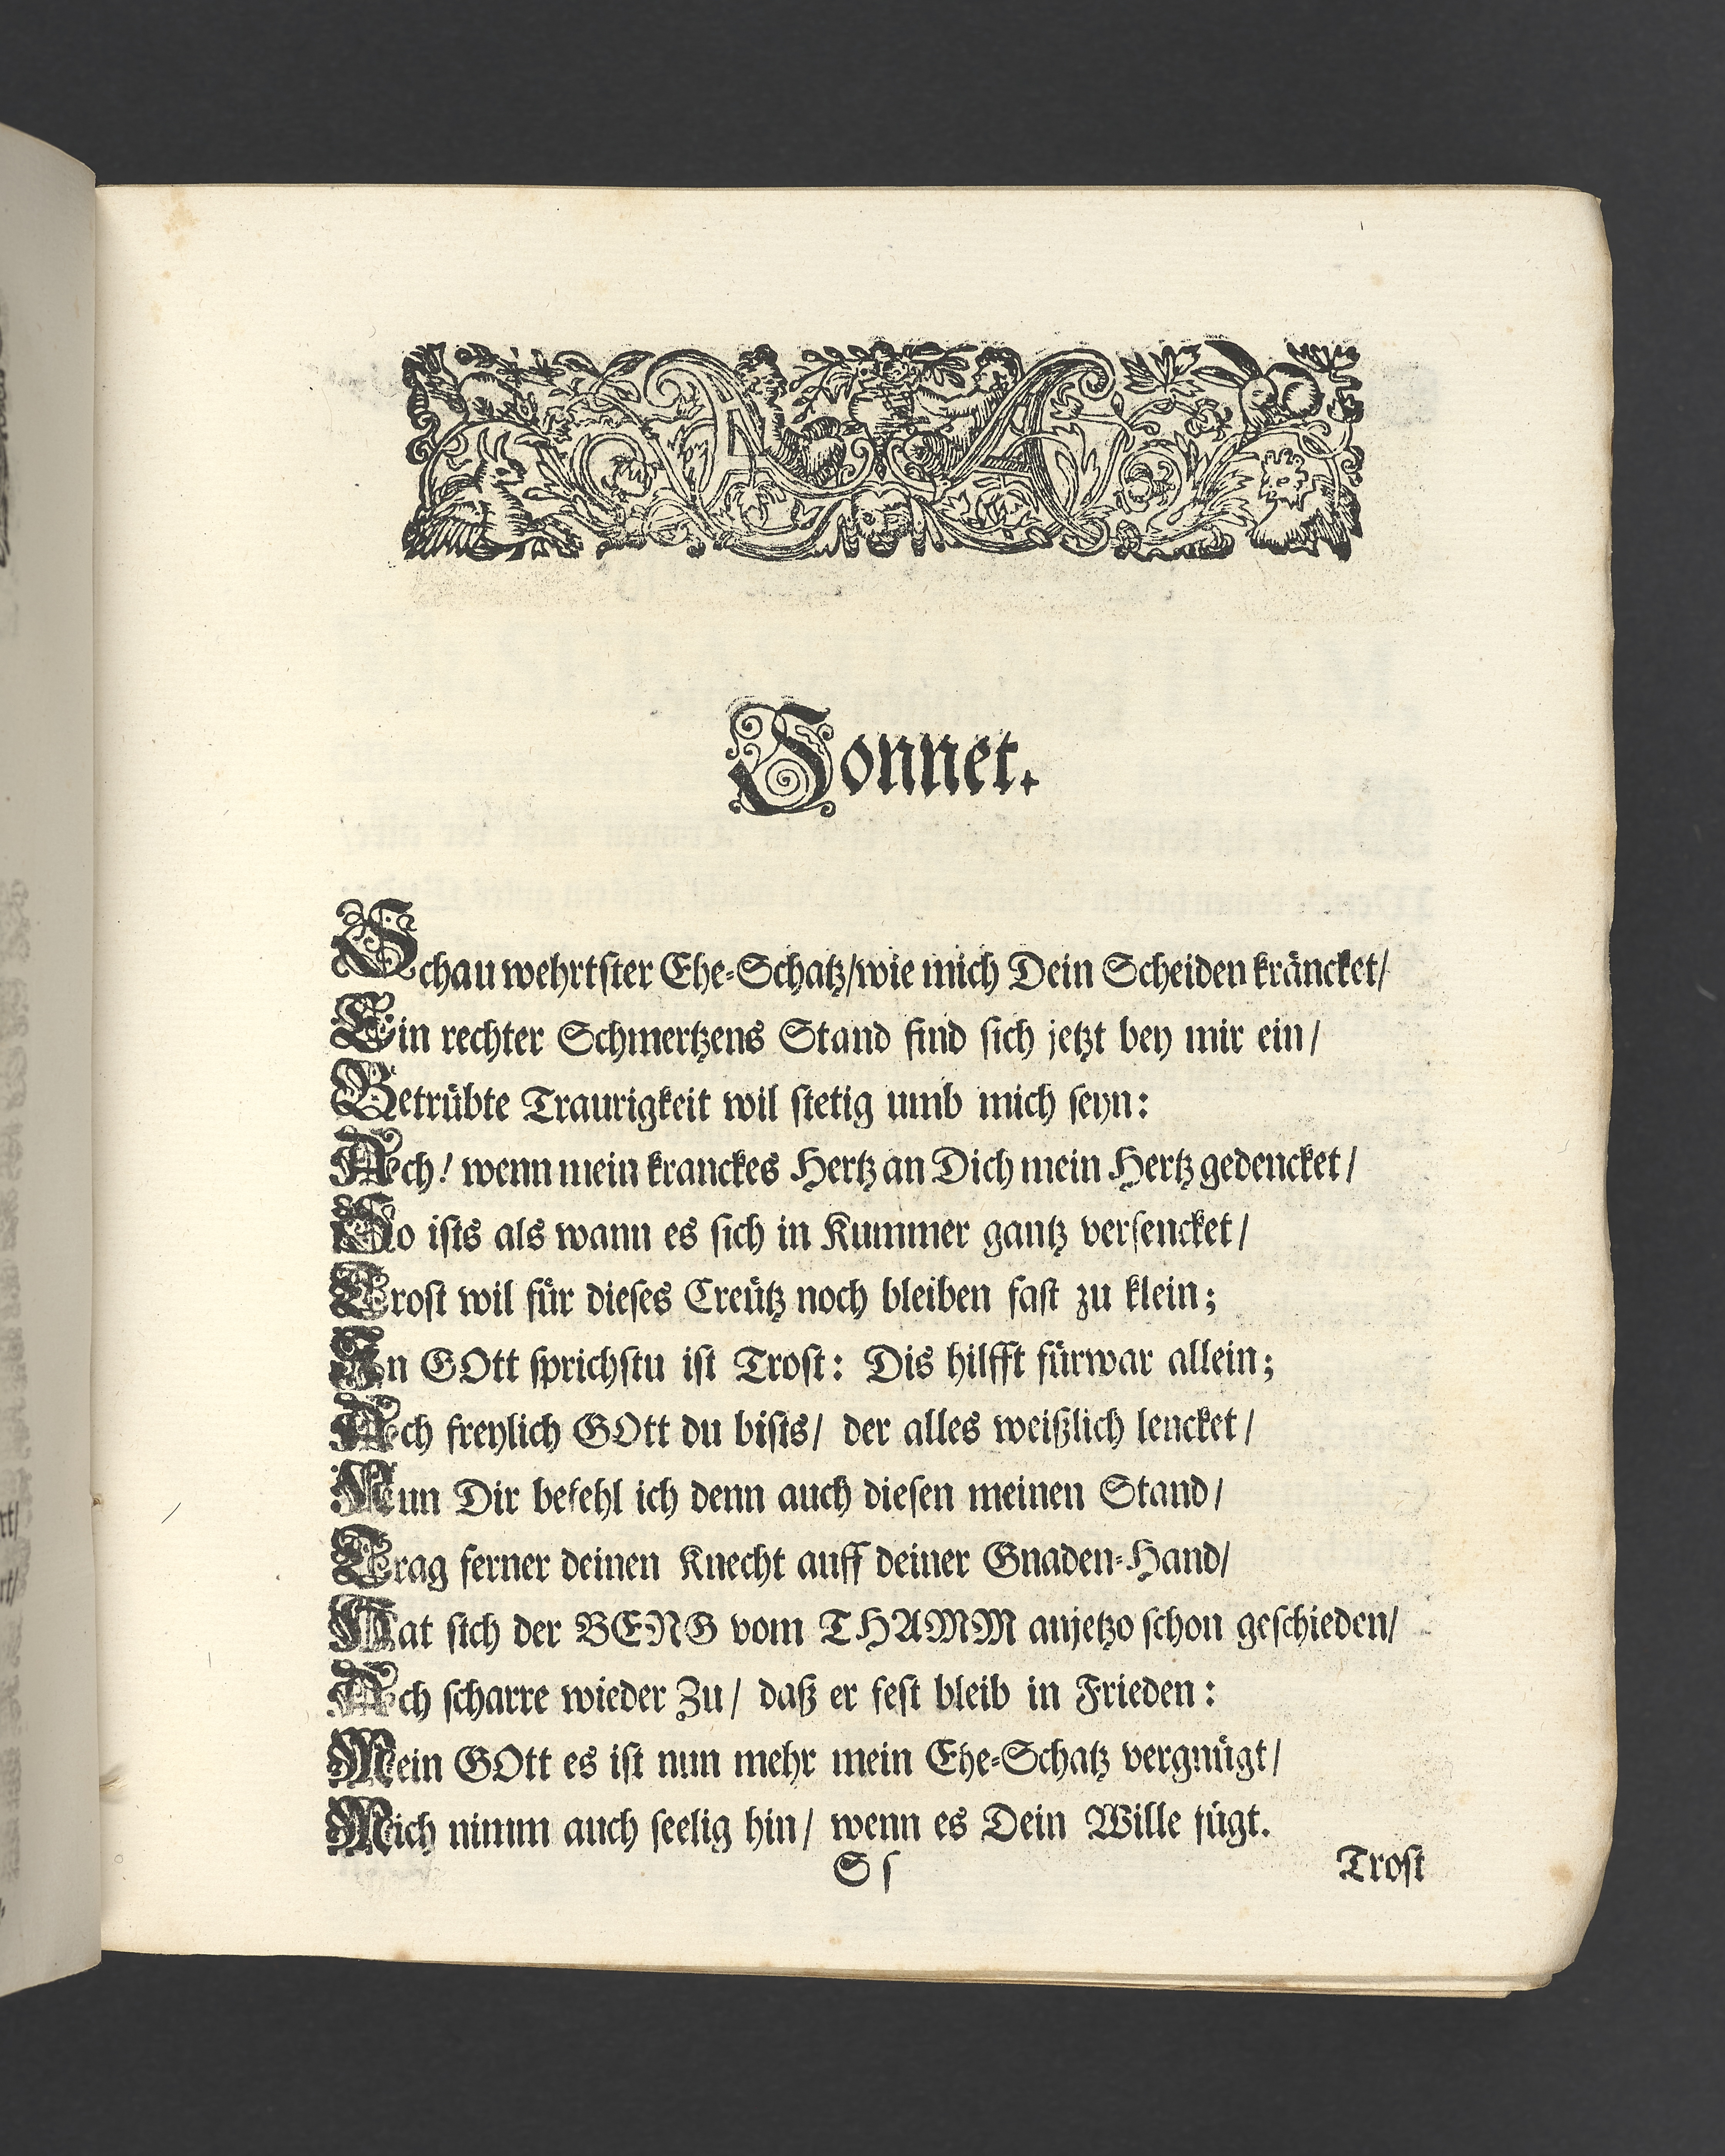 Sonnet.
Schau wehrtſter Ehe-Schatz/wie mich Dein Scheiden kräncket/
Ein rechter Schmertzens Stand find ſich jetzt bey mir ein/
Betrübte Traurigkeit wil ſtetig umb mich ſeyn:
Ach! wenn mein kranckes Hertz an Dich mein Hertz gedencket/
So iſts als wann es ſich in Kummer gantz verſencket/
Troſt wil für dieſes Creütz noch bleiben faſt zu klein;
In GOtt ſprichſtu iſt Troſt: Dis hilfft fürwar allein;
Ach freylich GOtt du biſts/ der alles weißlich lencket/
Nun Dir befehl ich denn auch dieſen meinen Stand/
Trag ferner deinen Knecht auff deiner Gnaden-Hand/
Hat ſich der BERG vom THAMM anjetzo ſchon geſchieden/
Ach ſcharre wieder Zu/ daß er feſt bleib in Frieden:
Mein GOtt es iſt nun mehr mein Ehe-Schatz vergnügt/
Mich nimm auch ſeelig hin/ wenn es Dein Wille fügt.
S ſ
Troſt